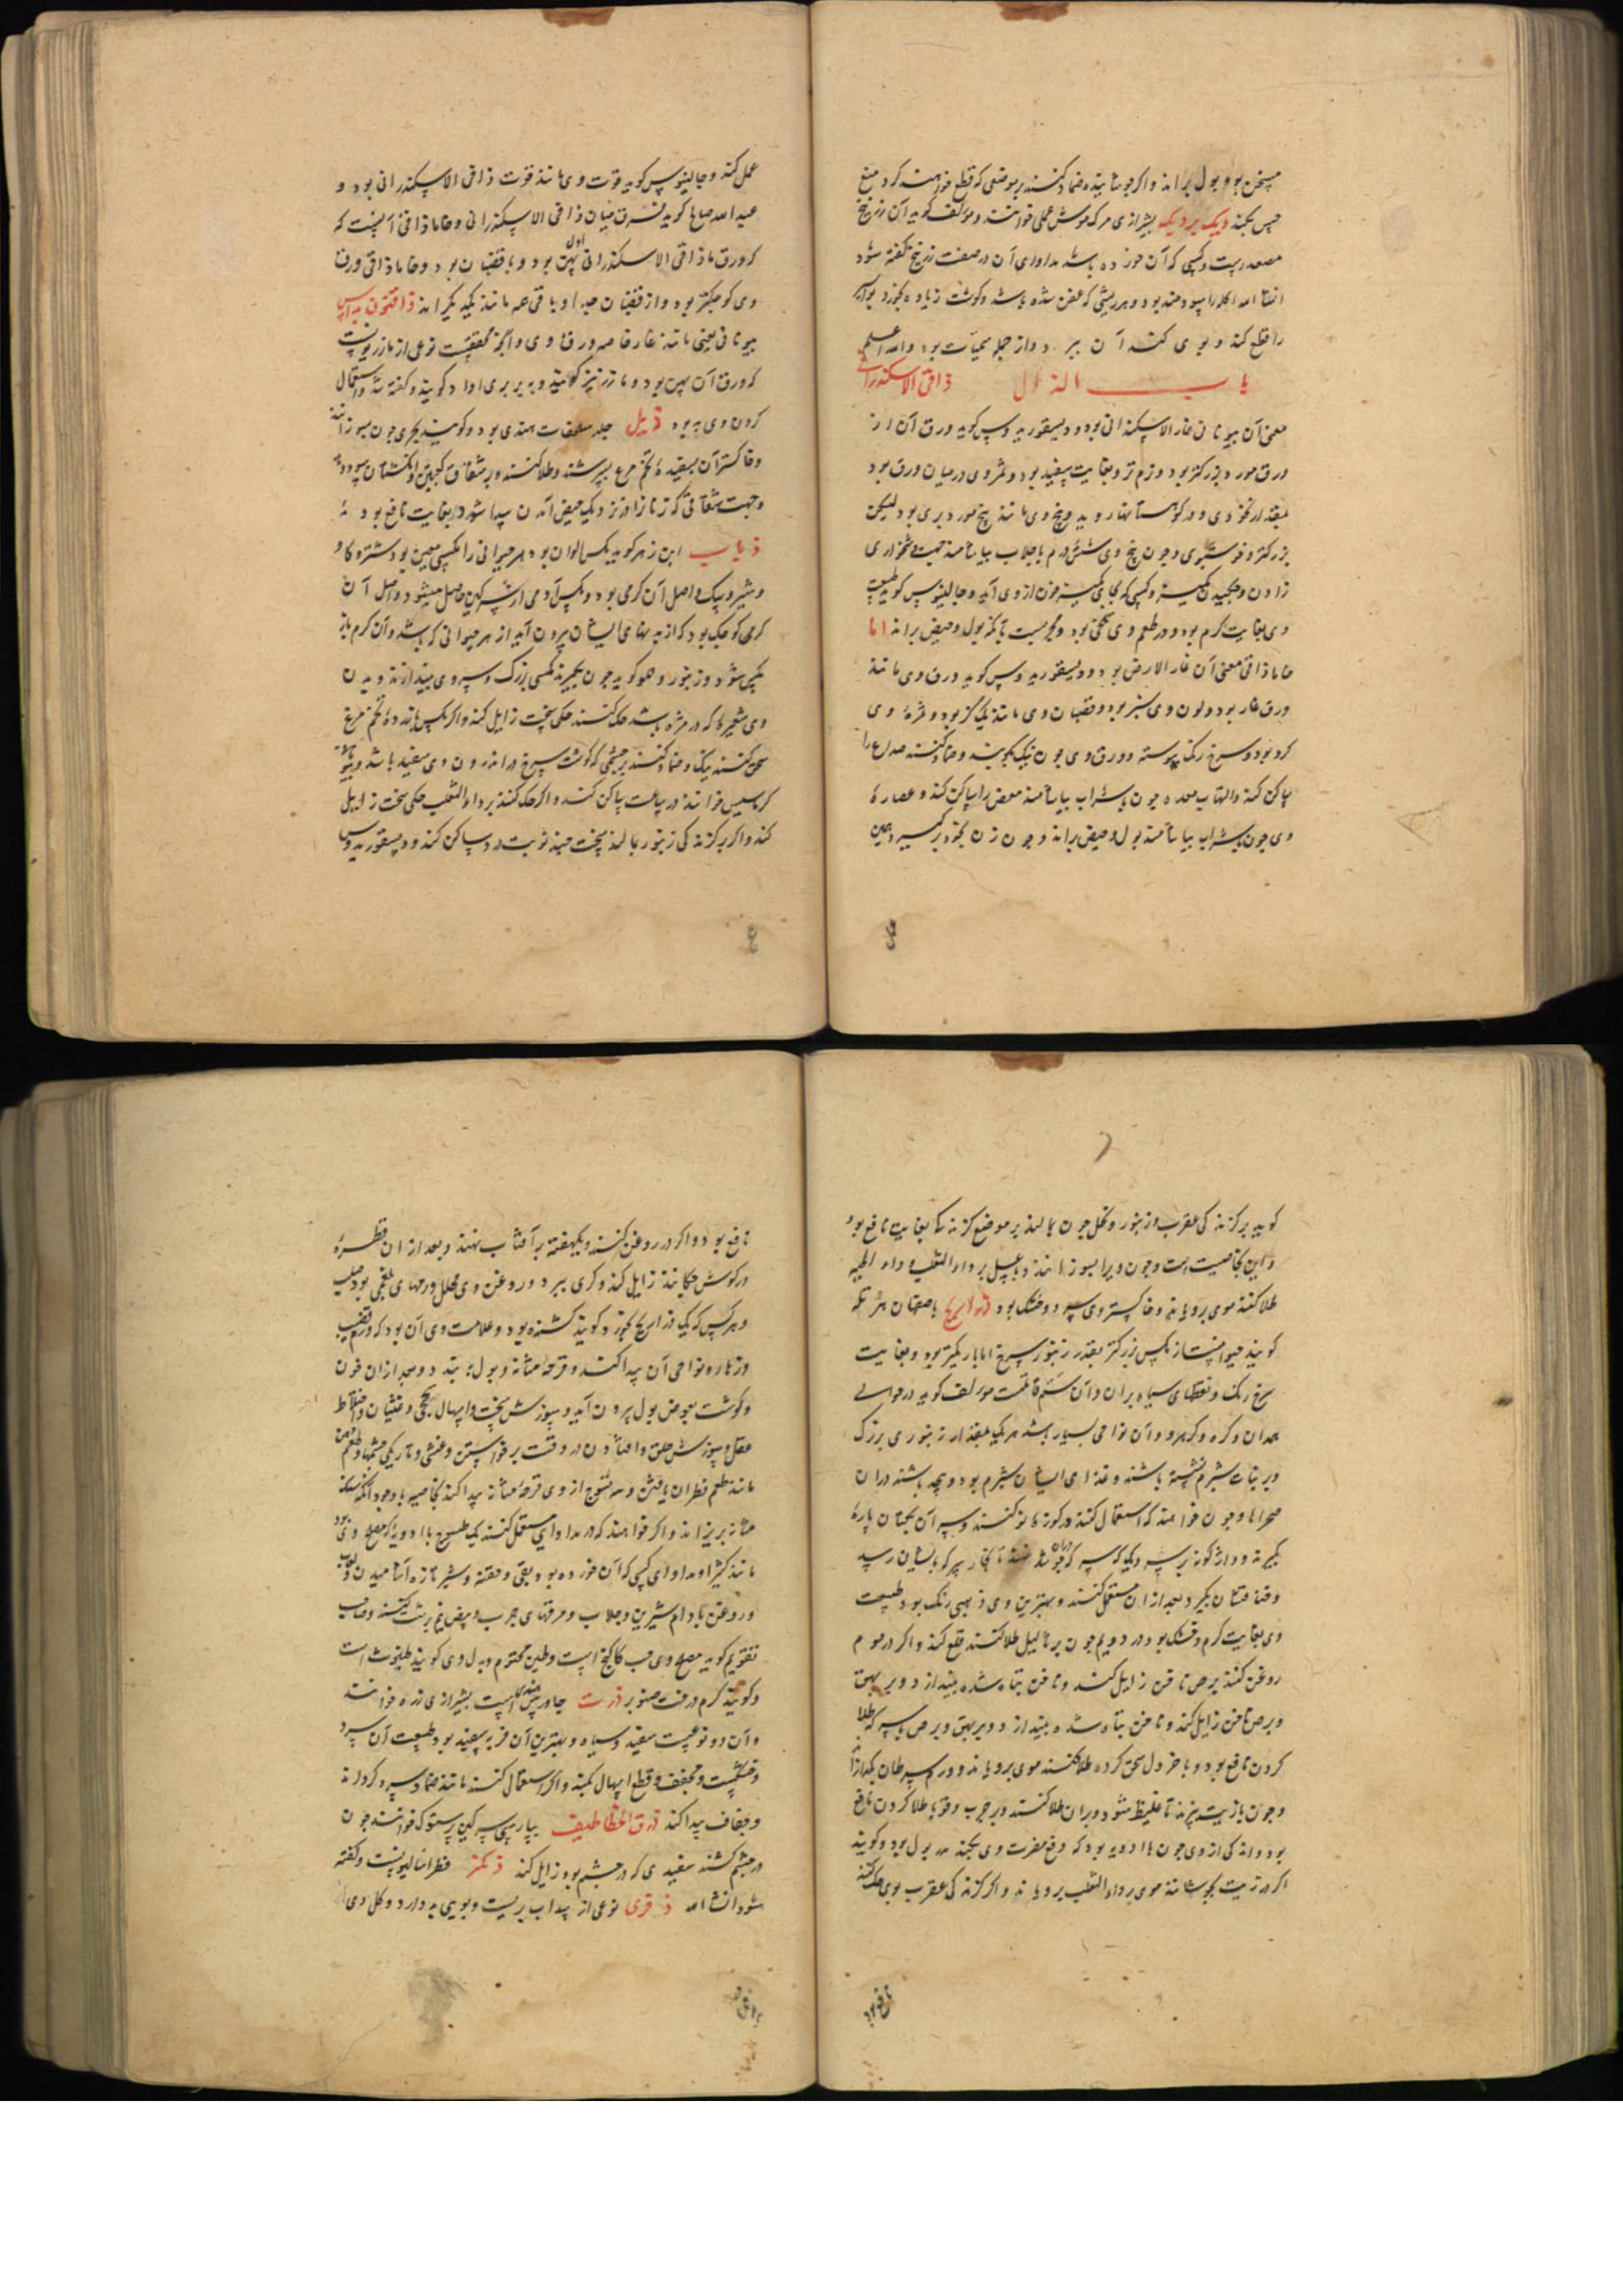 مسخن بود و بول براند و اگر جوشانیده ضماد کنند بر موضعی که قطع خواهند کرد منع
حس بکند دیک بر دیک بشیرازی مرکه موش عملی خوانند و مولف گوید آن زرنیخ
مصعد است و کسی که آن خورده باشد مداوای آن در صفت زرنیخ گفته شود
انشا الله اکله را سودمند بود و هر ریشی که عفن شده باشد و گوشت زیاده بخورد بواسیر
را قطع کند و بوی کند آن ببرد و از جمله سمیات بود والله اعلم
باب الذال ذاقی الاسکندرانی
معنی آن بیونانی غار الاسکندرانی بود و دیسقوریدوس گوید ورق آن از
ورق مورد بزرکتر بود و نرم تر و بغایت سفید بود و ثمر وی در میان ورق بود
بمقدار نخودی و در کوهستانها روید و بیخ وی مانند بیخ مورد بری بود لیکن
بزرکتر و خوشبوی و چون بیخ وی شش درم با جلاب بیاشامند جهت دشخواری
زادن و چکیدن کمیز و کسی که بجای کمیز خون از وی آید و جالینوس گوید طبیعت
وی بغایت گرم بود و در طعم وی تلخی بود و مجربست با آنکه بول و حیض براند اما
خاماذاقی معنی آن غار الارض بود و دیسقوریدوس گوید ورق وی مانند
ورق غار بود و لون وی سبز بود و قضبان وی مانند یک گز بود و ثمره وی
گرد بود و سرخ رنک پیوسته و ورق وی چون نیک بکوبند و ضماد کنند صداع را
ساکن کند و التهاب معده چون با شراب بیاشامند مغص را ساکن کند و عصاره
وی چون با شراب بیاشامند بول و حیض براند و چون زن بخود برگیرد همین
عمل کند و جالینوس گوید قوت وی مانند قوت ذاقی الاسکندرانی بود و
عبدالله صالح گوید فرق میان ذاقی الاسکندرانی و خاماذاقی آنست که
که ورق ذاقی الاسکندرانی اول پهن بود و با قضبان بود و خاماذاقی ورق
وی کوچکتر بود و از قضبان جدا و باقی همه مانند یکدیگراند ذافنون بداس
بیونانی یعنی مانند غار خاصه ورق وی و آنچه محققست نوعی از مازریونست
که ورق آن پهن بود و مازر نیز گویند و به بربری اداد گویند و گفته شد و استعمال
کردن وی به بود ذبل جلد سلحفات هندی بود و گویند بحری چون بسوزانند
و خاکستر آن بسفیده تخم مرغ بسرشند و طلا کنند و بر شقاق کعبین و انگشتان سود دهد
و جهت شقاقی که زنانرا در نزدیک حیض آمدن پیدا شود بغایت نافع بود
ذباب ابن زهر گوید مگس الوان بود هر حیوانی را مگسی معین بود شتر و گاو
و شیر و سگ و اصل آن کرمی بود و مگس آدمی از سرگین حاصل میشود و اصل آن
کرمی کوچک بود که از بدنهای ایشان بیرون آید از هر حیوانی که باشد و آن کرم باز
مگس شود و زنبور و هم گوید چون بگیرند مگسی بزرگ و سر وی بیندازند و بدن
وی شعیره که در مژه باشد حک کنند حکی سخت زایل کند و اگر مگس با زرده تخم مرغ
سحق کنند نیک و ضماد کنند بر چشمی که گوشت سرخ در اندرون وی سفید باشد و بیونانی
کرماسیس خوانند در ساعت ساکن کند و اگر حک کنند بر داء الثعلب حکی سخت زایل
کند و اگر بر گزندگی زنبور بمالند سخت چند نوبت درد ساکن کند و دیسقوریدوس
گوید بر گزندگی عقرب و زنبور و نحل چون بمالند بر موضع گزندگی بغایت نافع بود
و این بخاصیت است و چون ویرا بسوزانند و با عسل بر داء الثعلب و داء الحیه
طلا کنند موی برویاند و خاکستر وی سرد و خشک بود ذراریح باصفهان
گویند حیوانیست از مگس بزرگتر بقدر زنبور سرخ اما باریکتر بود و بغایت
سرخ رنگ و نقطهای سیاه بر آن و آن سم قاتلست مولف گوید در حوالی
همدان و کره و کرهرود و آن نواحی بسیار باشد هر یک بمقدار زنبوری بزرگ
و بر نبات شبرم نشسته باشند و غذای ایشان شبرم بود و بچه باشند در آن
صحراها و چون خواهند که استعمال کنند در کوزه نو کنند و سر آن بکتان پاره
بگیرند و دارند کوزه بر سر دیگ که سرکه جوشان بود تا بخار سرکه بایشان رسد
و خفه شان بگیرد بعد از آن مستعمل کنند و بهترین وی ذهبی رنگ بود طبیعت
وی بغایت گرم و خشک بود در دویم چون بر ثآلیل طلا کنند قلع کند و اگر در موم
روغن کنند برص ناخن زایل کند و ناخن تباه شده بیندازد و بر بهق
و برص ناخن زایل کند و ناخن تباه شده بیندازد و بر بهق و برص با سرکه طلا
کردن نافع بود و با خردل سحق کرده طلا کنند موی برویاند و ورم سرطان بگدازد
و چون با زیت بپزند تا غلیظ شود و بر آن طلا کنند و بر جرب و قوبا طلا کردن نافع
بود و اندکی از وی چون با ادویه بود که دفع مضرت وی بکند مدر بول بود و گویند
اگر در زیت بجوشانند موی بر داء الثعلب برویاند و اگر گزندگی عقرب بوی حک کنند
نافع بود
نافع بود و اگر در روغن کنند و یکهفته بر آفتاب نهند و بعد از آن قطره
در گوش چکانند زایل کند و کری ببرد و روغن وی محلل ورمهای بلغمی بود صلب
و هر کس که یک ذراریح بخورد گویند کشنده بود و علامت وی آن بود که ورم قضیب
و زهار و نواحی آن پیدا کند و قرحه مثانه و بول ببندد و بعد از آن خون
و گوشت بعوض بول بیرون آید و سوزش سخت و اسهال سحجی و غثیان و اختلاط
عقل و سوزش حلق و افتادن در وقت برخواستن و غشی و تاریکی چشمها و طعم دهن
مانند طعم قطران یافتن و سه تسوج از وی قرحه مثانه پیدا کند بخاصیه با وجود آنکه سنگ
مثانه بریزاند و اگر خواهند که در مداوای مستعمل کنند یک طسوج با ادویه که مصلح وی بود
مانند کثیرا و مداوای کسی که آن خورده بود بقی و حقنه و شیر تازه آشامیدن و لعاب
و روغن بادام شیرین و جلاب و مرقهای چرب و بیض نیم برشت کنند و صاحب
تقویم گوید مصلح وی حب کاکنج است و طین مختوم و بدل وی گویند طیفوث است
و گویند کرم درخت صنوبر ذرت جاورس هندی است بشیرازی ذره خوانند
و آن دو نوعست سفید و سیاه و بهترین آن فربه سفید بود طبیعت آن سرد
و خشکست و مجفف و قطع اسهال بکند و اگر استعمال کنند مانند ضماد سرد گرداند
و جفاف پیدا کند ذرق الخطاطیف بپارسی سرگین پرستوک خوانند چون
در چشم کشند سفیدی که در چشم بود زایل کند ذکر فطراسالیونست و گفته
شود انشا الله ذفری نوعی از سداب بریست و بویی بد دارد و گل وی